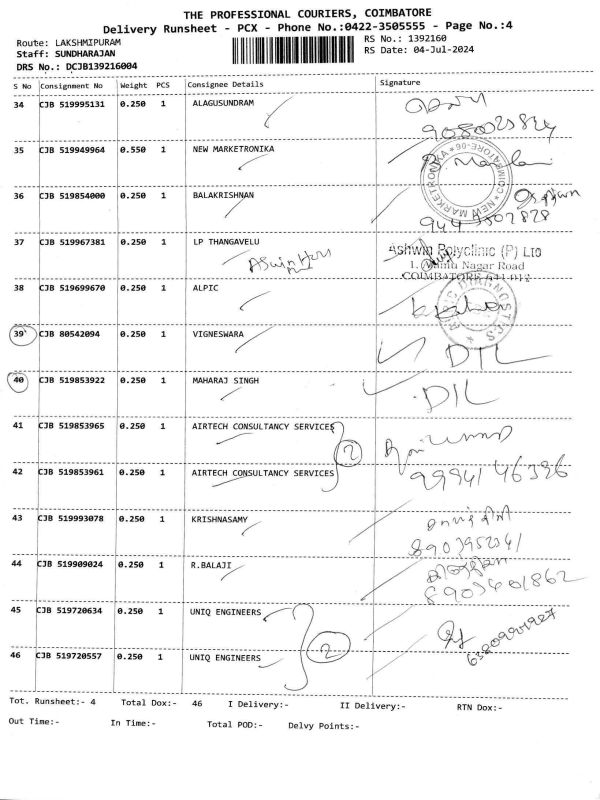 THE PROFESSIONAL COURIERS, COIMBATORE
Delivery Runsheet - PCX - Phone No.:0422-3505555 - Page No.:4
Route: LAKSHMIPURAM
RS No.: 1392160
Staff: SUNDHARAJAN
RS Date: 04-Jul-2024
DRS No.: DCJB139216004
S No Consignment No Weight PCS Consignee Details Signature
34 CJB 519995131 0.250 1 ALAGUSUNDRAM
35 CJB 519949964 0.550 1 NEW MARKETRONIKA
NEW MARKETRONIKA * COIMBATORE-06 *
36 CJB 519854000 0.250 1 BALAKRISHNAN
37 CJB 519967381 0.250 1 LP THANGAVELU
Ashwin Polyclinic (P) LTD
Nagar Road
COIMBATORE 641 012
38 CJB 519699670 0.250 1 ALPIC
DIAGNOSTICS
39 CJB 80542094 0.250 1 VIGNESWARA DIL
40 CJB 519853922 0.250 1 MAHARAJ SINGH DIL
41 CJB 519853965 0.250 1 AIRTECH CONSULTANCY SERVICES
2
42 CJB 519853961 0.250 1 AIRTECH CONSULTANCY SERVICES
43 CJB 519993078 0.250 1 KRISHNASAMY
44 CJB 519909024 0.250 1 R.BALAJI
8903401862
45 CJB 519720634 0.250 1 UNIQ ENGINEERS
2
46 CJB 519720557 0.250 1 UNIQ ENGINEERS
Tot. Runsheet:- 4 Total Dox:- 46 I Delivery:- II Delivery:- RTN Dox:-
Out Time:- In Time:- Total POD:- Delvy Points:-